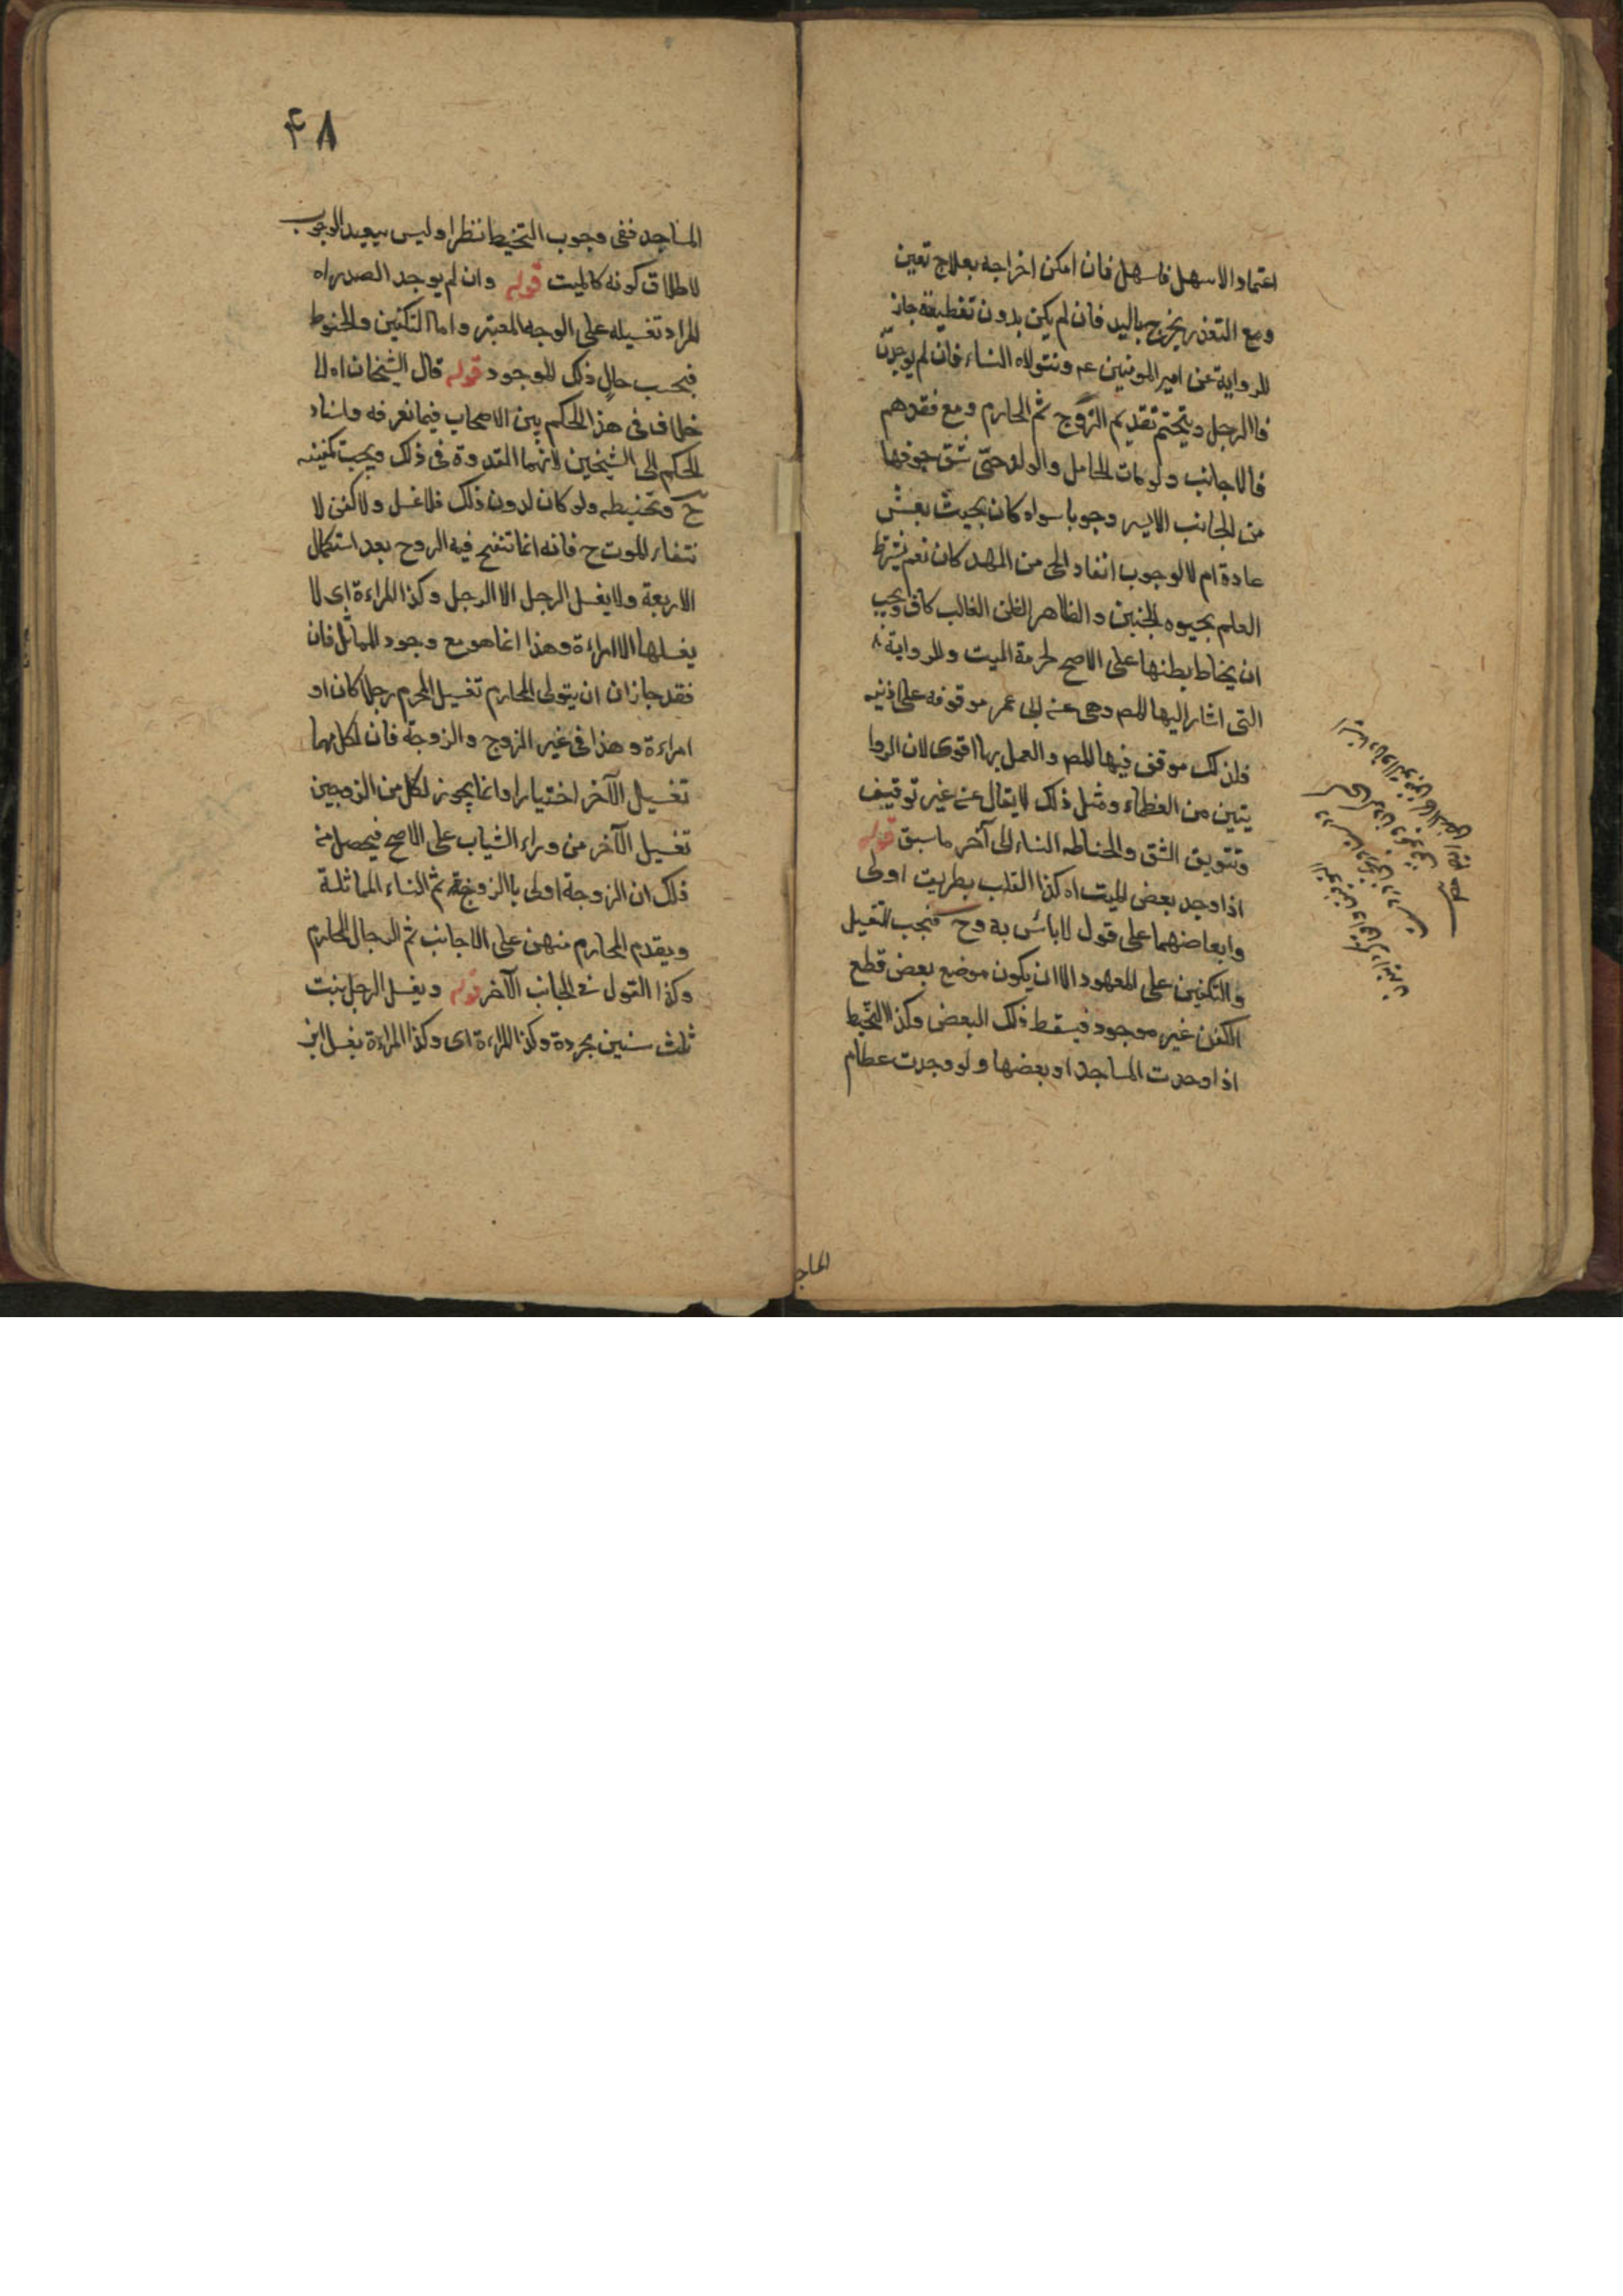 اعتماد الاسهل فاسهل فان امكن اخراجه بعلاج تعين
ومع التعذر يخرج باليد فان لم يكن بدون تقطيعه جاز
للرواية عن امير المومنين عم ونتولاه النساء فان لم يوجدن
فاالرجل ويتحتم تقديم الزوج ثم المحارم ومع فقدهم
فالاجانب ولو مات الحامل والولد حى شق جوفها
من الجانب الايسر وجوبا سواء كان بحيث يعيش
عادة ام لا لوجوب انقاد الحى من المهلك كان نعم يشترط
العلم بحيوه الجنين والظاهر الظن الغالب كاف ويجب
ان يخاط بطنها على الاصح لحرمة الميت وللرواية
التى اشار اليها المص وهى عن ابى عمر موقوفه على اذنيه
فلذلك موقف فيها المص والعمل بها اقوى لان الروا
يتين من العظماء ومثل ذلك لايقال عن غير توقيف
وتتويق الشق والخناطه النساء الى آخر ما سبق قوله
اذا وجد بعض الميت اه كذا القلب بطريت اولى
وابعاضهما على قول لاباس به وح فيجب التغسيل
والتكفين على المعهود الا ان يكون موضع بعض قطع
الكفن غير موجود فيسقط ذلك البعض وكذا التحنيط
اذا وجدت المساجد او بعضها ولو وجدت عظام
المساجد
۴۸
المساجد ففى وجوب التحنيط نظرا وليس ببعيد الوجوب
لاطلاق كونه كالميت قوله وان لم يوجد الصدر اه
المراد تغسيله على الوجه المعتبر واما التكفين والحنوط
فبحسب حال ذلك الموجود قوله قال الشيخان اه لا
خلاف فى هذا الحكم بين الاصحاب فيما نعرفه واسناد
الحكم الى الشيخين لانهما القدوة فى ذلك ويجب تكفينه
ح وتحنيطه ولو كان لدون ذلك فلا غسل ولا كفن لا
نتفاء الموت ح فانه انما تنفخ فيه الروح بعد استكمال
الاربعة ولا يغسل الرجل الا الرجل وكذا المراءة اى لا
يغسلها الا امراءة وهذا انما هو مع وجود المماثل فان
فقد جاز ان ان يتولى المحارم تغسيل المحرم رجلا كان او
امراءة وهذا فى غير الزوج والزوجة فان لكل منهما
تغسيل الآخر اختيارا وانما يجوز لكل من الزوجين
تغسيل الآخر من وراء الثياب على الاصح فيحصل من
ذلك ان الزوجة اولى با الزوج ثم النساء المماثلة
ويقدم المحارم منهن على الاجانب ثم الرجال المحارم
وكذا القول فى الجانب الآخر قوله ويغسل الرجل بنت
ثلث سنين مجردة وكذا المراءة اى وكذا المراءة تغسل ابن